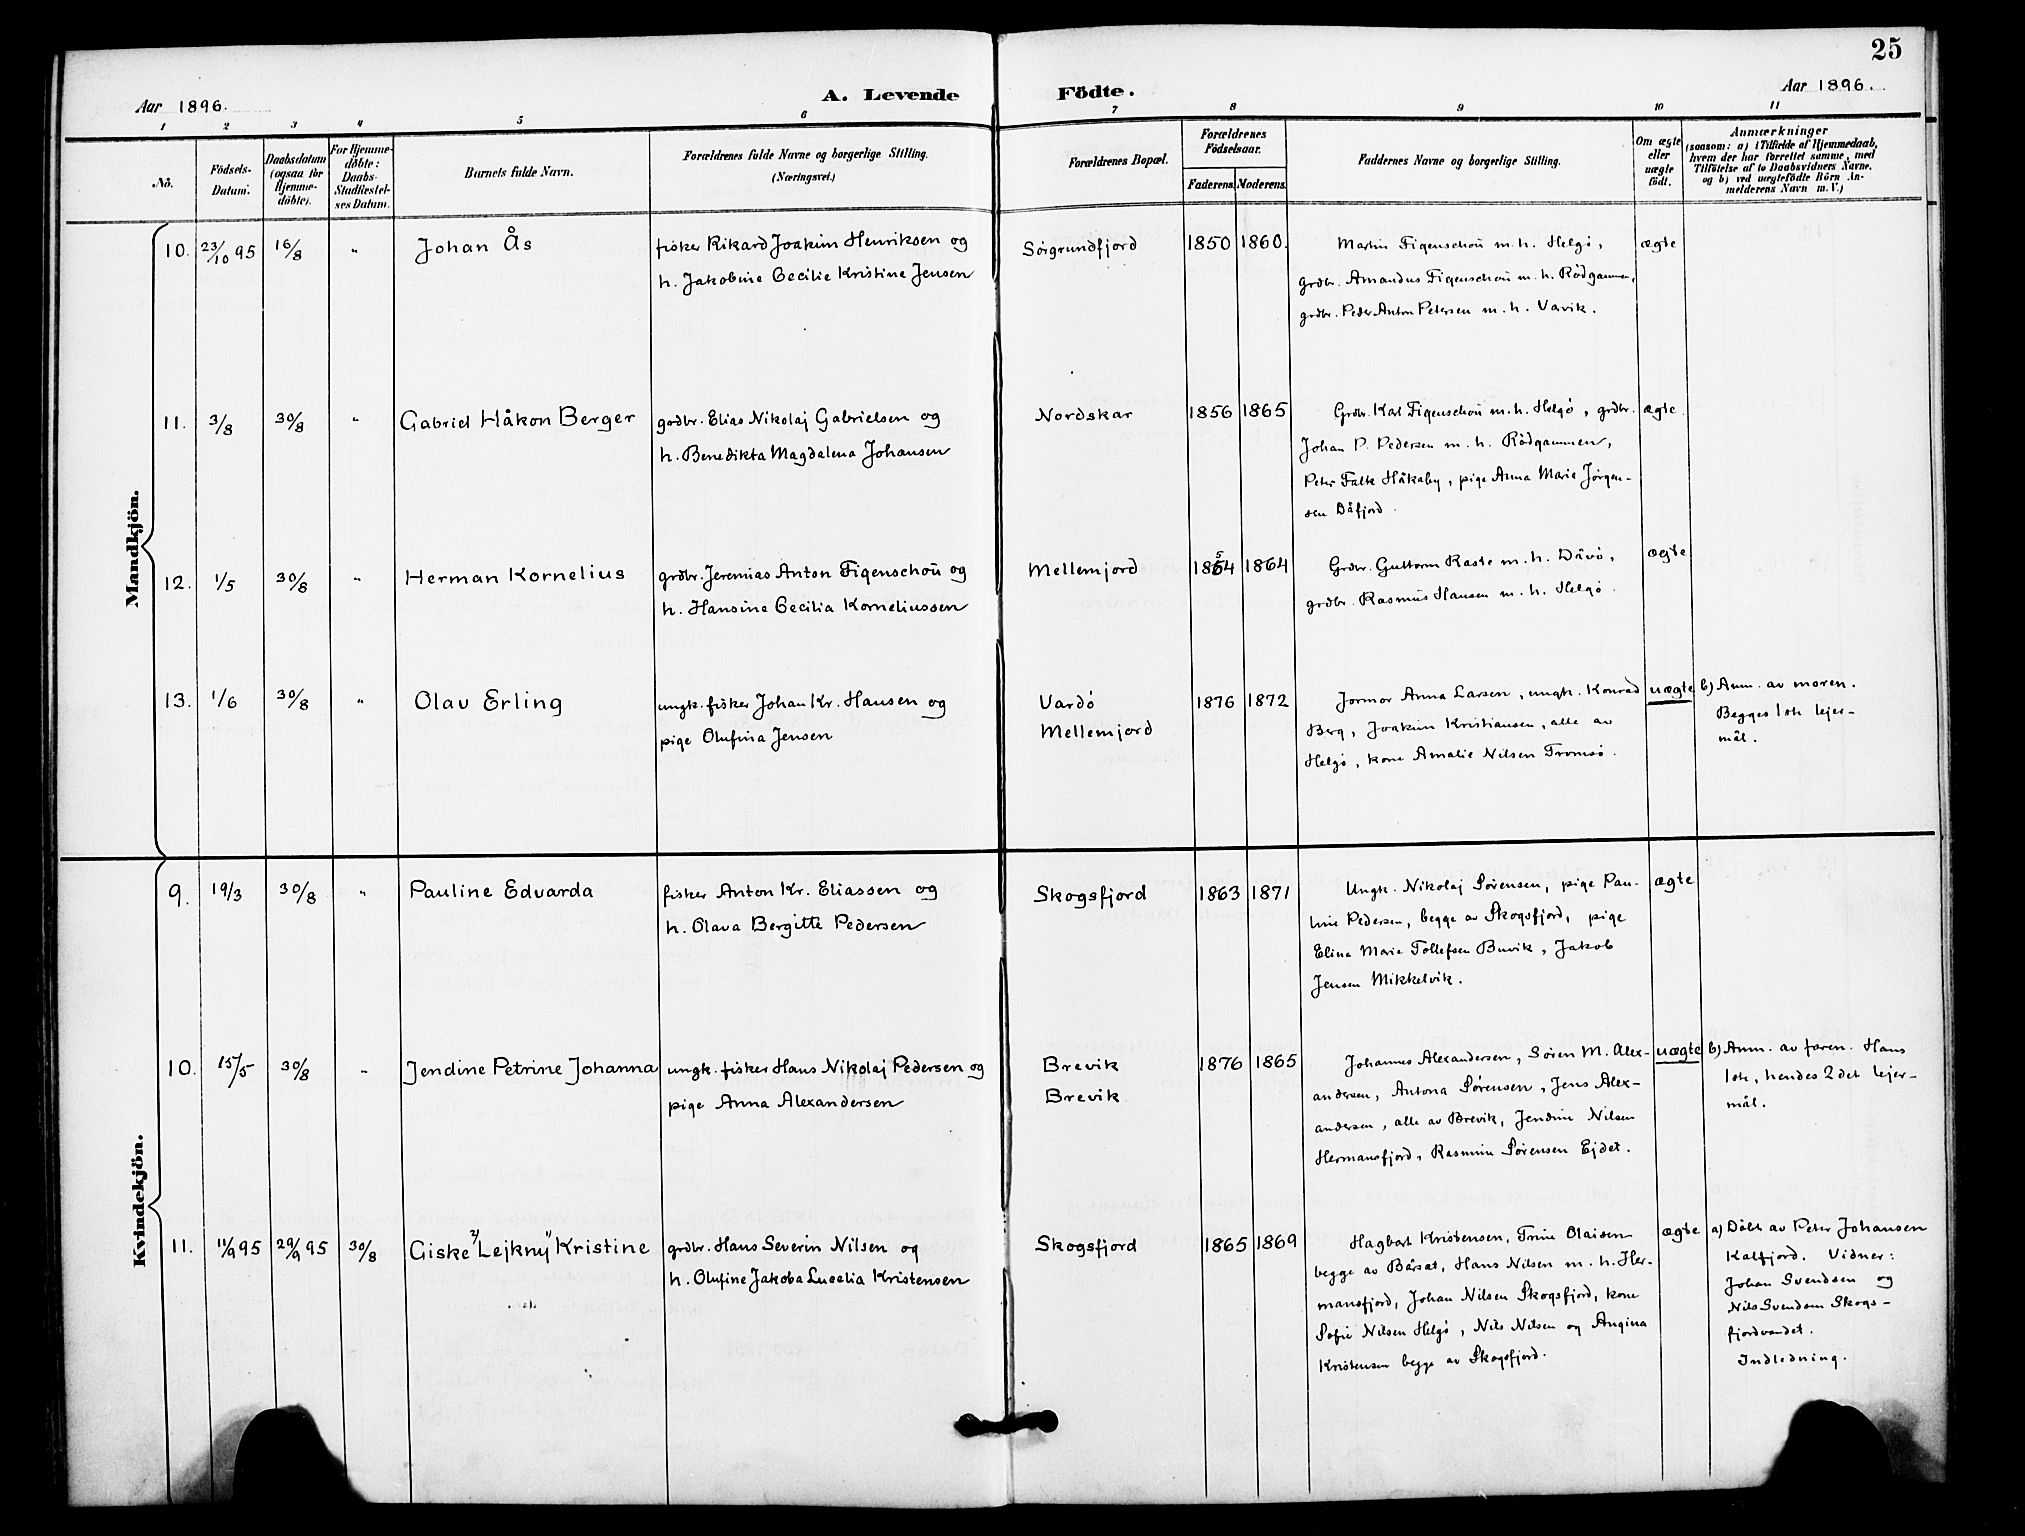 25
Aar 1896. A. Levende Födte. Aar 1896.
1 2 3 4 5 6 7 8 9 10 11
Nö.
Födsels-
Datum.
Daabsdatum
(ogsaa for
Hjemme-
döbte).
For Hjemme-
döbte:
Daabs-
Stadfæstel-
ses Datum.
Barnets fulde Navn.
Forældrenes fulde Navne og borgerlige Stilling.
(Næringsvei.)
Forældrenes Bopæl.
Forældrenes
Födselsaar.
Faderens. Moderens.
Faddernes Navne og borgerlige Stilling.
Om ægte
eller
uægte
födt.
Anmærkninger
(saasom: a) i Tilfælde af Hjemmedaab,
hvem der har forrettet samme, med
Tilföielse af to Daabsvidners Navne,
og b) ved uægtefödte Börn An-
melderens Navn m. V.)
Mandkjön.
10. 23/10 95 16/8 " Johan Ås
fisker Rikard Joakim Henriksen og
h. Jakobine Cecilie Kristine Jensen
Sörgrundfjord 1850 1860.
Martin Figenschoü m. h. Helgö,
grdbr. Amandus Figenschoü m. h. Rödgammen,
grdbr. Peder Anton Petersen m. h. Vavik.
ægte
11. 3/8 30/8 " Gabriel Håkon Berger
grdbr. Elias Nikolaj Gabrielsen og
h. Benedikta Magdalena Johansen
Nordskar 1856 1865
Grdbr. Karl Figenschoü m. h. Helgö, grdbr.
Johan P. Pedersen m. h. Rödgammen,
Peter Falk Håkøby, pige Anna Marie Jörgen-
sen Dåfjord.
ægte
12. 1/5 30/8 " Herman Kornelius
grdbr. Jeremias Anton Figenschoü og
h. Hansine Cecilia Korneliussen
Mellemjord 1854 1864
Grdbr. Guttorm Raste m. h. Dåvö,
grdbr. Rasmus Hansen m. h. Helgö.
ægte
13. 1/6 30/8 " Olav Erling
ungk. fisker Johan Kr. Hansen og
pige Olufina Jensen
Vardö
Mellemjord
1876 1872
Jormor Anna Larsen, ungk. Konrad
Berg, Joakim Kristiansen, alle av
Helgö, kone Amalie Nilsen Tromsö.
uægte
b) Anm. av moren.
Begges 1ste lejer-
mål.
Kvindekjön.
9. 19/3 30/8 " Pauline Edvarda
fisker Anton Kr. Eliassen og
h. Olava Bergitte Pedersen
Skogsfjord 1863 1871
Ungk. Nikolaj Sörensen, pige Pau-
line Pedersen, begge av Skogsfjord, pige
Elina Marie Tollefsen Buvik, Jakob
Jensen Mikkelvik.
ægte
10. 15/5 30/8 " Jendine Petrine Johanna
ungk. fisker Hans Nikolaj Pedersen og
pige Anna Alexandersen
Brevik
Brevik
1876 1865
Johannes Alexandersen, Sören M. Alex-
andersen, Antona Sörensen, Jens Alex-
andersen, alle av Brevik, Jendine Nilsen
Hermansfjord, Rasmine Sörensen Ejdet.
uægte
b) Anm. av faren. Hans
1ste, hendes 2det lejer-
mål.
11. 11/9 95 29/9 95 30/8 Giske "Lejkny" Kristine
grdbr. Hans Severin Nilsen og
h. Olufine Jakoba Lucelia Kristensen
Skogsfjord 1865 1869
Hagbart Kristensen, Trine Olaisen
begge av Bårset, Hans Nilsen m. h. Her-
mansfjord, Johan Nilsen Skogsfjord, kone
Sofie Nilsen Helgö, Nils Nilsen og Angina
Kristensen begge av Skogsfjord.
ægte
a) Döbt av Peter Johansen
Kalfjord. Vidner:
Johan Svendsen og
Nils Svendsen Skogs-
fjordvandet.
Indledning.